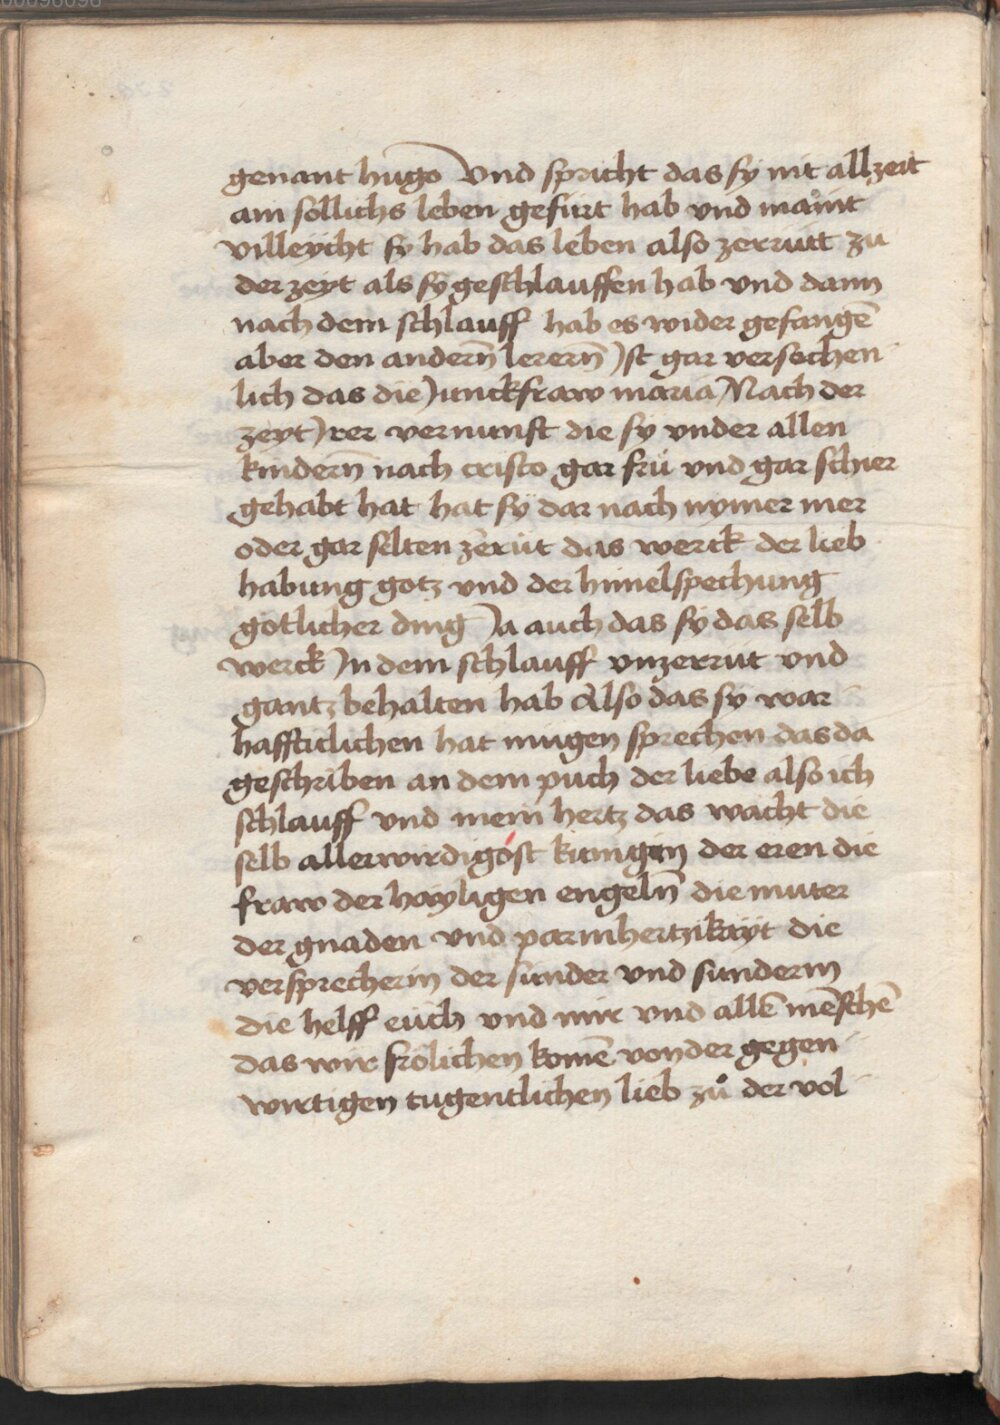 genant hugo Vnd spricht das sy nit allzeit
am söllichs leben gefürt hab vnd maint
villeycht sy hab das leben also zerrütt zu
der zeyt als sy geschlauffen hab vnd dann
nach dem schlauff hab es wider gefangē
aber den andern̄ lerern̄ Ist gar versechen
lich das die Junckfraw maria Nach der
zeyt Irer vernunft die sy vnder allen
kindern̄ nach cristo gar frü vnd gar schier
gehabt hat hat sy dar nach nymer mer
oder gar selten zerüt das werck der lieb
habung gotz vnd der himelspechung
götlicher ding Ja auch das sy das selb
werck In dem schlauff vnzerrüt vnd
gantz behalten hab Also das sy war
haffticlichen hat mügen sprechen das da
geschriben an dem puch der liebe also ich
schlauff vnd mein hertz das wacht die
selb allerwirdigóst künigin der eren die
fraw der hayligen engeln̄ die muter
der gnaden vnd parmhertzikayt die
versprecherin der sünder vnd sunderin
die helff euch vnd mir vnd allē mēschē
das wir frölichen komē von der gegen
wirtigen tugentlichen lieb zů der vol